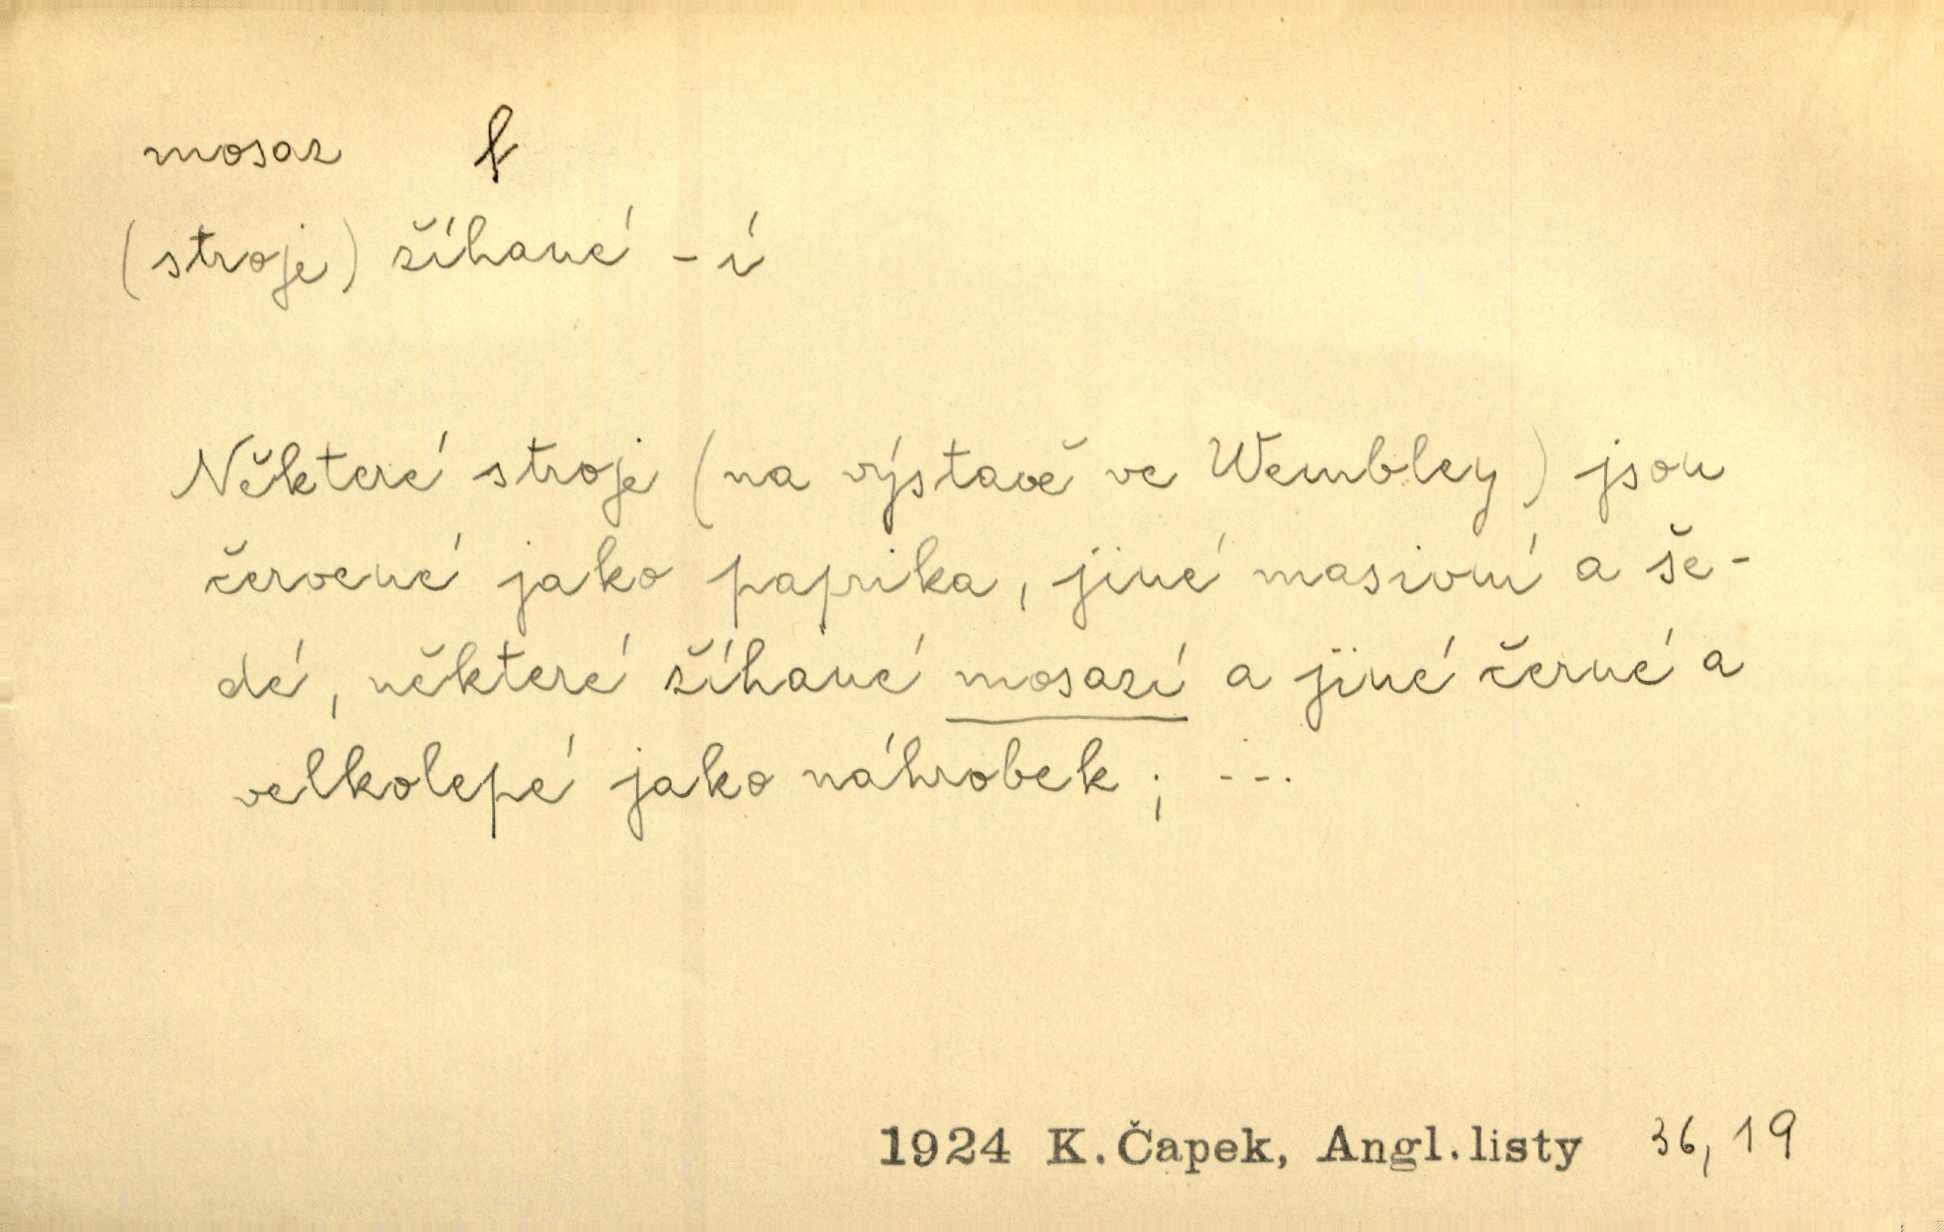 mosaz f
(stroje) žíhané -í
Některé stroje (na výstavě ve Wembley) jsou
červené jako paprika, jiné masivní a še-
dé, některé žíhané mosazí a jiné černé a
velkolepé jako náhrobek; ---
1924 K. Čapek, Angl. listy 36, 19